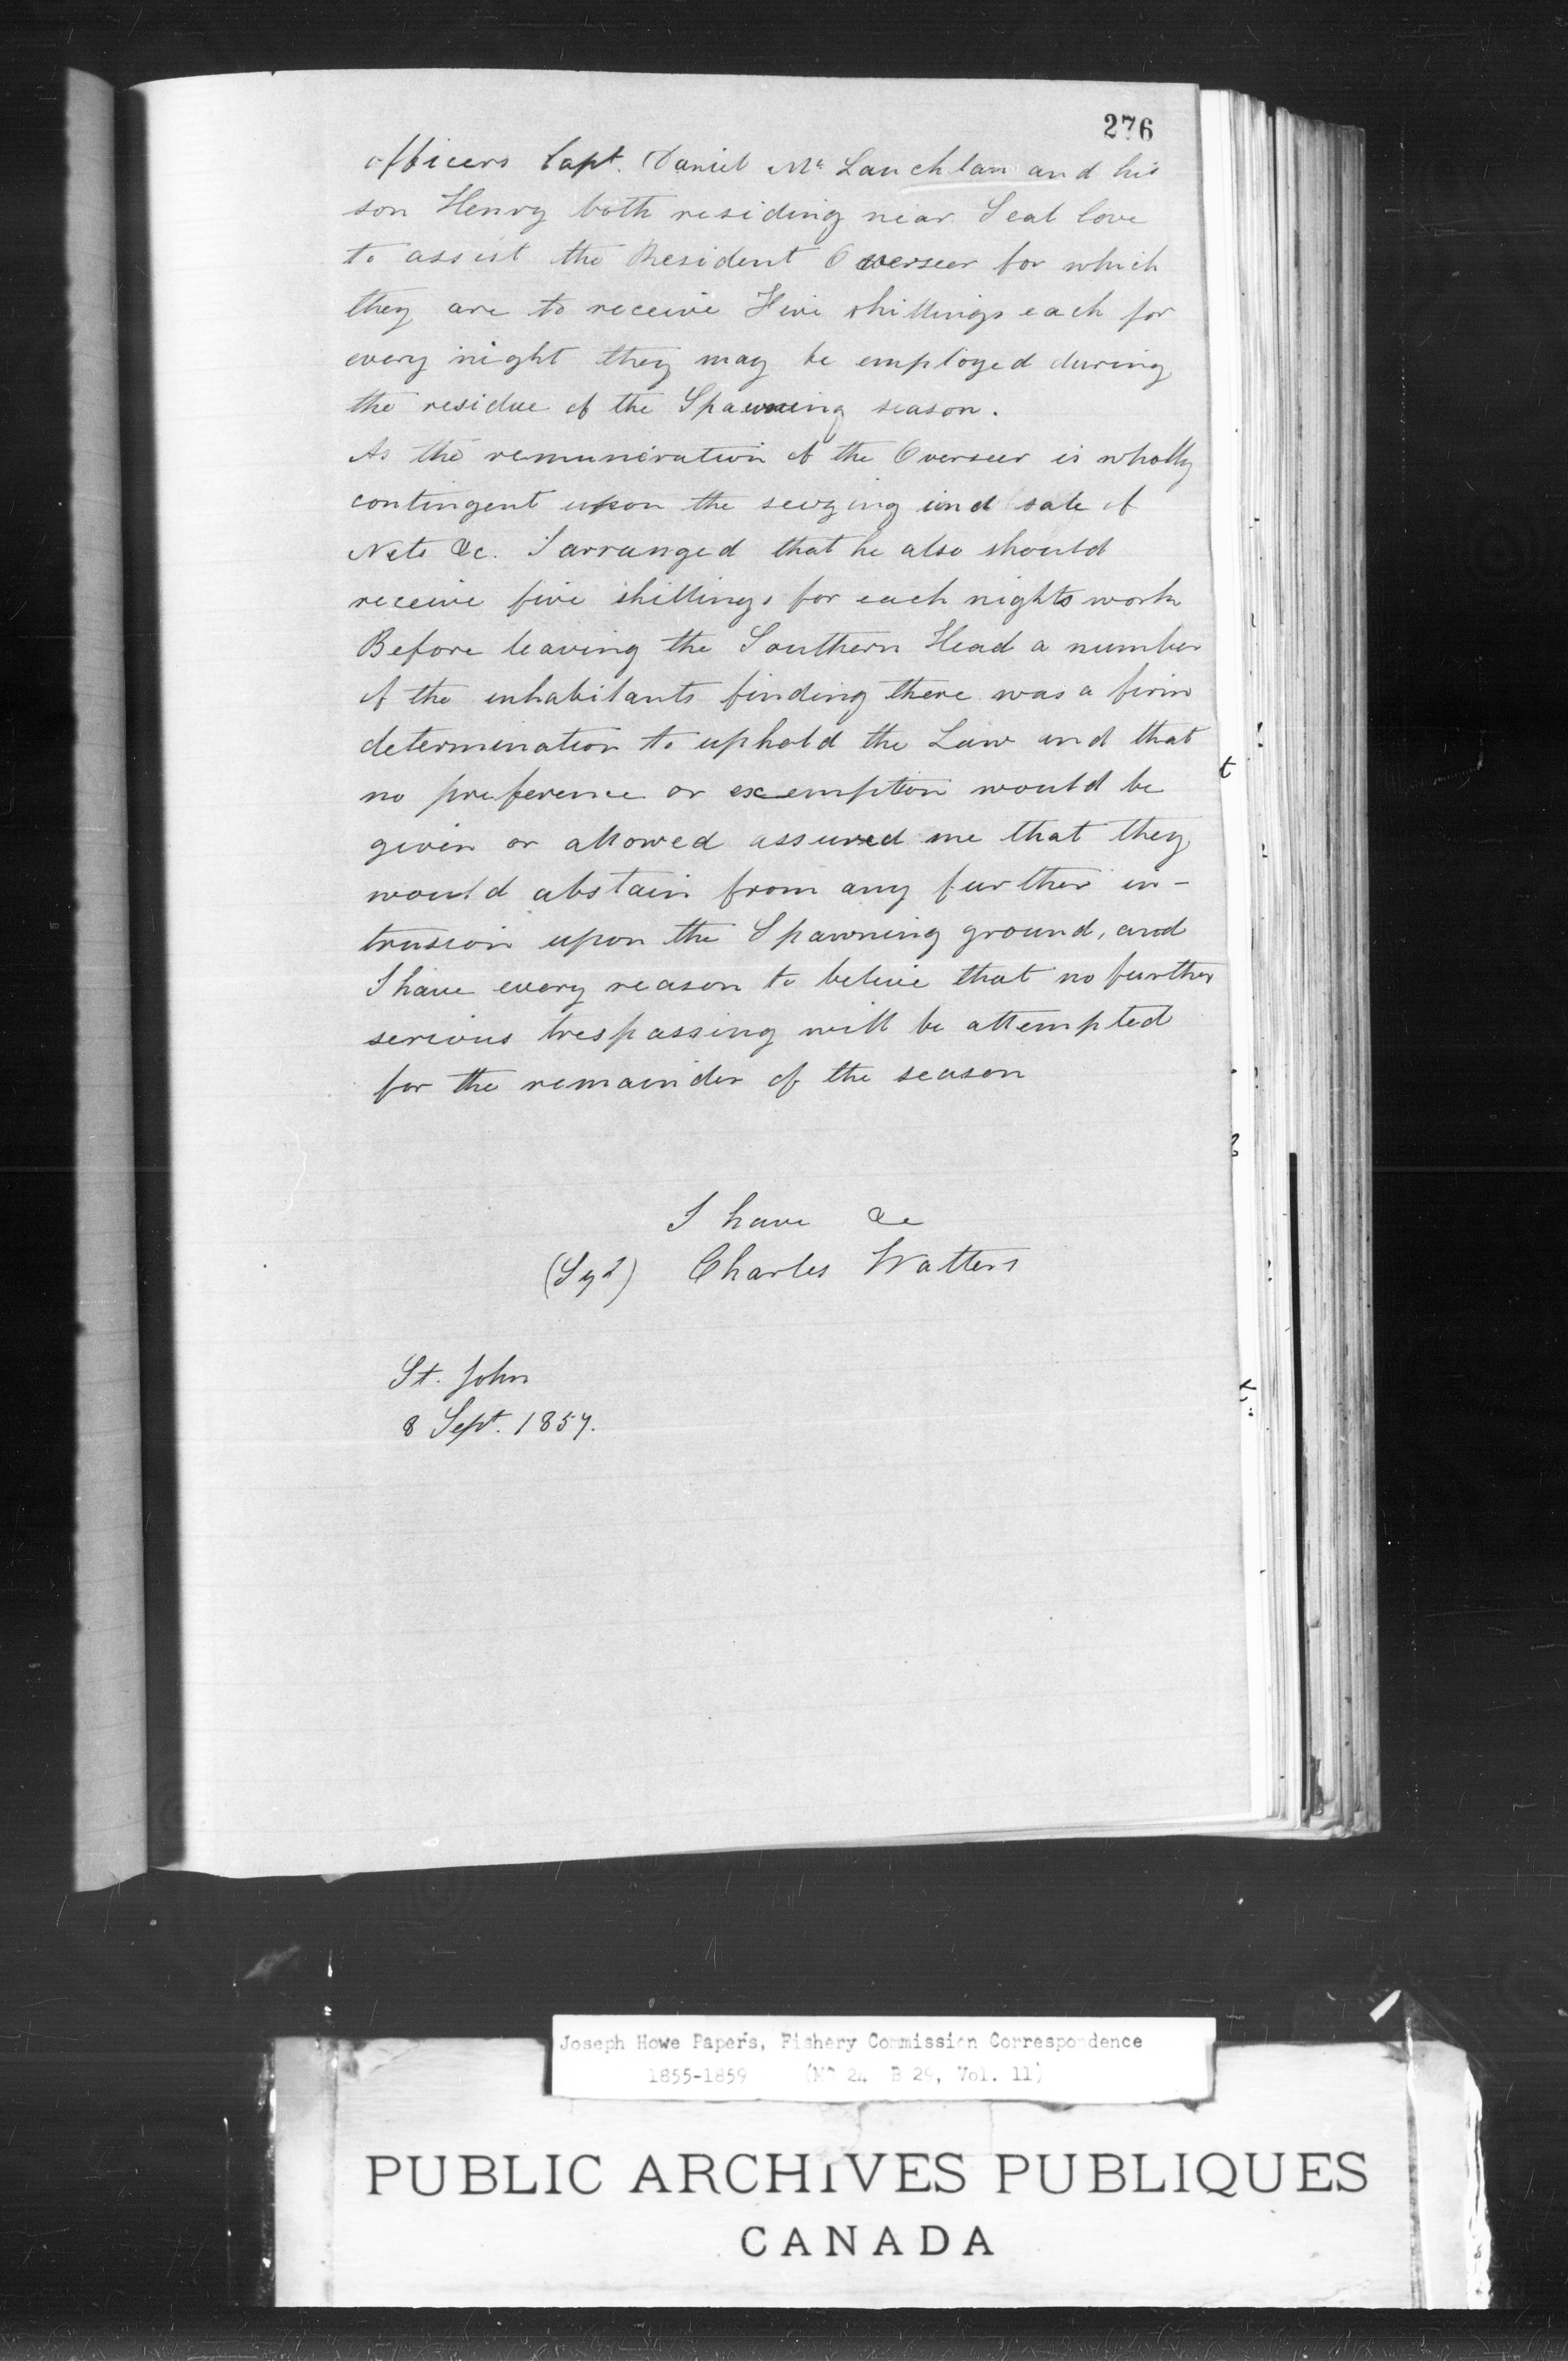 276
officers Capt. Daniel Mc Lauchlan and his
son Henry both residing near Seal Cove
to assist the Resident Overseer for which
they are to receive Five shillings each for
every night they may be employed during
the residue of the Spawning season.
As the remuneration of the Overseer is wholly
contingent upon the seizing and sale of
Nets &c. I arranged that he also should
receive five shillings for each nights work
Before leaving the Southern Head a number
of the inhabitants finding there was a firm
determination to uphold the Law and that
no preference or exemption would be
given or allowed assured me that they
would abstain from any further in-
trusion upon the Spawning ground, and
I have every reason to belive that no further
serious trespassing will be attempted
for the remainder of the season
I have &c
(Sgd) Charles Watters
St. John
8 Sept. 1857.
Joseph Howe Papers, Fishery Commission Correspondence
1855-1859 (MG 24 B 29, Vol. 11)
PUBLIC ARCHIVES PUBLIQUES
CANADA